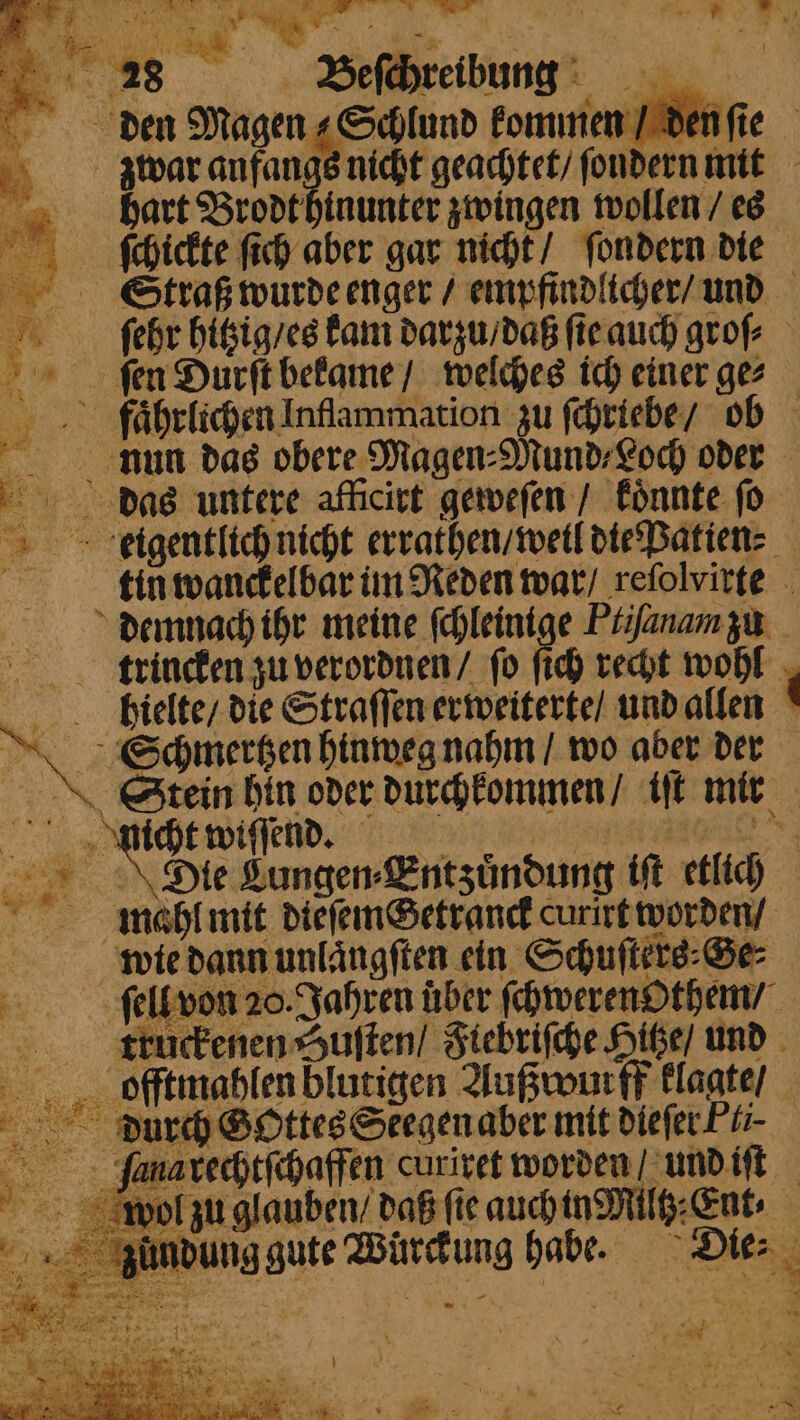 28 Beſchreibung
den Magen⸗Schlund kommen / den ſie
zwar anfangs nicht geachtet / ſondern mit
hart Brodt hinunter zwingen wollen / es
ſchickte ſich aber gar nicht / ſondern die
Straß wurde enger / empfindlicher / und
ſehr hitzig / es kam darzu / daß ſie auch groſ⸗
ſen Durſt bekame / welches ich einer ge⸗
faͤhrlichen Inflammation zu ſchriebe / ob
nun das obere Magen⸗Mund⸗Loch oder
das untere afficirt geweſen / koͤnnte ſo
eigentlich nicht errathen / weil die Patien⸗
tin wanckelbar im Reden war / reſolvirte
demnach ihr meine ſchleinige Ptiſanam zu
trincken zu verordnen / ſo ſich recht wohl
hielte / die Straſſen erweiterte / und allen
Schmertzen hinweg nahm / wo aber der
Stein hin oder durchkommen / iſt mir
nicht wiſſend.
Die Lungen⸗Entzuͤndung iſt etlich
mahl mit dieſem Getranck curirt worden /
wie dann unlaͤngſten ein Schuſters⸗Ge⸗
ſell von 20. Jahren uͤber ſchweren Othem /
truckenen Huſten / Fiebriſche Hitze / und
offtmahlen blutigen Außwurff klagte /
durch GOttes Seegen aber mit dieſer Pti-
ſana rechtſchaffen curiret worden / und iſt
wol zu glauben / daß ſie auch in Miltz⸗Ent⸗
zuͤndung gute Wuͤrckung habe. Die⸗